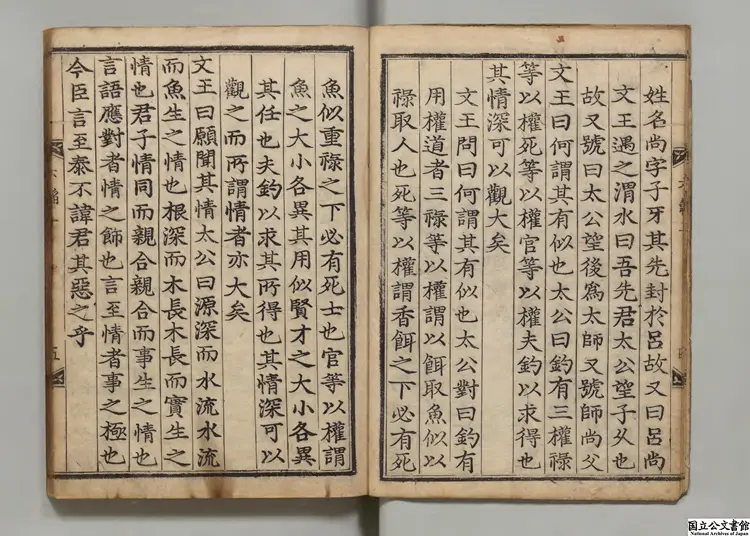 姓名尚字子牙其先封於呂故又曰呂尚
文王遇之渭水曰吾先君太公望子久也
故又號曰太公望後爲太師又號師尚父
文王曰何謂其有似也太公曰釣有三權祿
等以權死等以權官等以權夫釣以求得也
其情深可以觀大矣
文王問曰何謂其有似也太公對曰釣有
用權道者三祿等以權謂以餌取魚似以
祿取人也死等以權謂香餌之下必有死
魚似重祿之下必有死士也官等以權謂
魚之大小各異其用似賢才之大小各異
其任也夫釣以求其所得也其情深可以
觀之而所謂情者亦大矣
文王曰願聞其情太公曰源深而水流水流
而魚生之情也根深而木長木長而實生之
情也君子情同而親合親合而事生之情也
言語應對者情之飾也言至情者事之極也
今臣言至泰不諱君其惡之乎
五
国立公文書館
National Archives of Japan